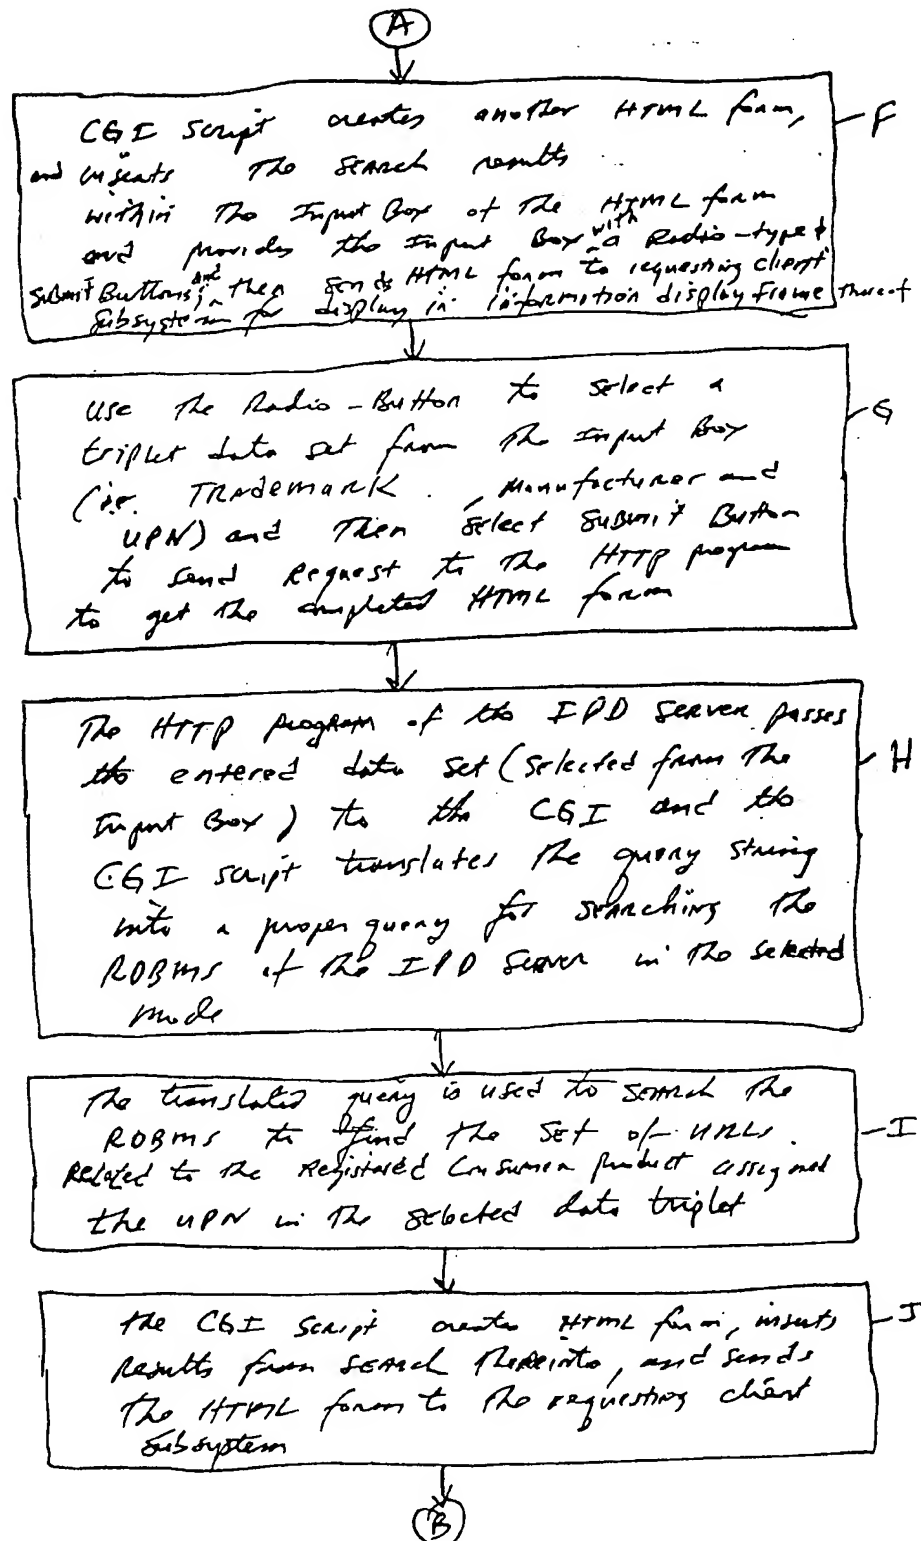 A
CGI Script creates another HTML form, F
and inserts The SEARCH results
within The Input Box of the HTML form
and provides the Input Box with a Radio-type &
Submit Buttons; and then sends HTML form to requesting client
Subsystem for display in information display Frame thereof
Use The Radio-Button to select a G
triplet data set from The Input Box
(i.e. TRademarK, Manufacturer and
UPN) and Then select SUBMIT Button
to send Request to the HTTP program
to get the completed HTML form
The HTTP program of the IPD Server passes
the entered data set (selected from The H
Input Box) to the CGI and the
CGI script translates the query string
into a proper query for SEARCHing The
RDBMS of the IPD Server in The selected
mode
The translated query is used to SEARCH The
RDBMS to find the SET of URLs I
Related to the Registered Consumer product assigned
the UPN in The selected data triplet
the CGI Script creates HTML form, inserts J
Results from SEARCH Thereinto, and sends
The HTML form to The requesting client
Subsystem
B